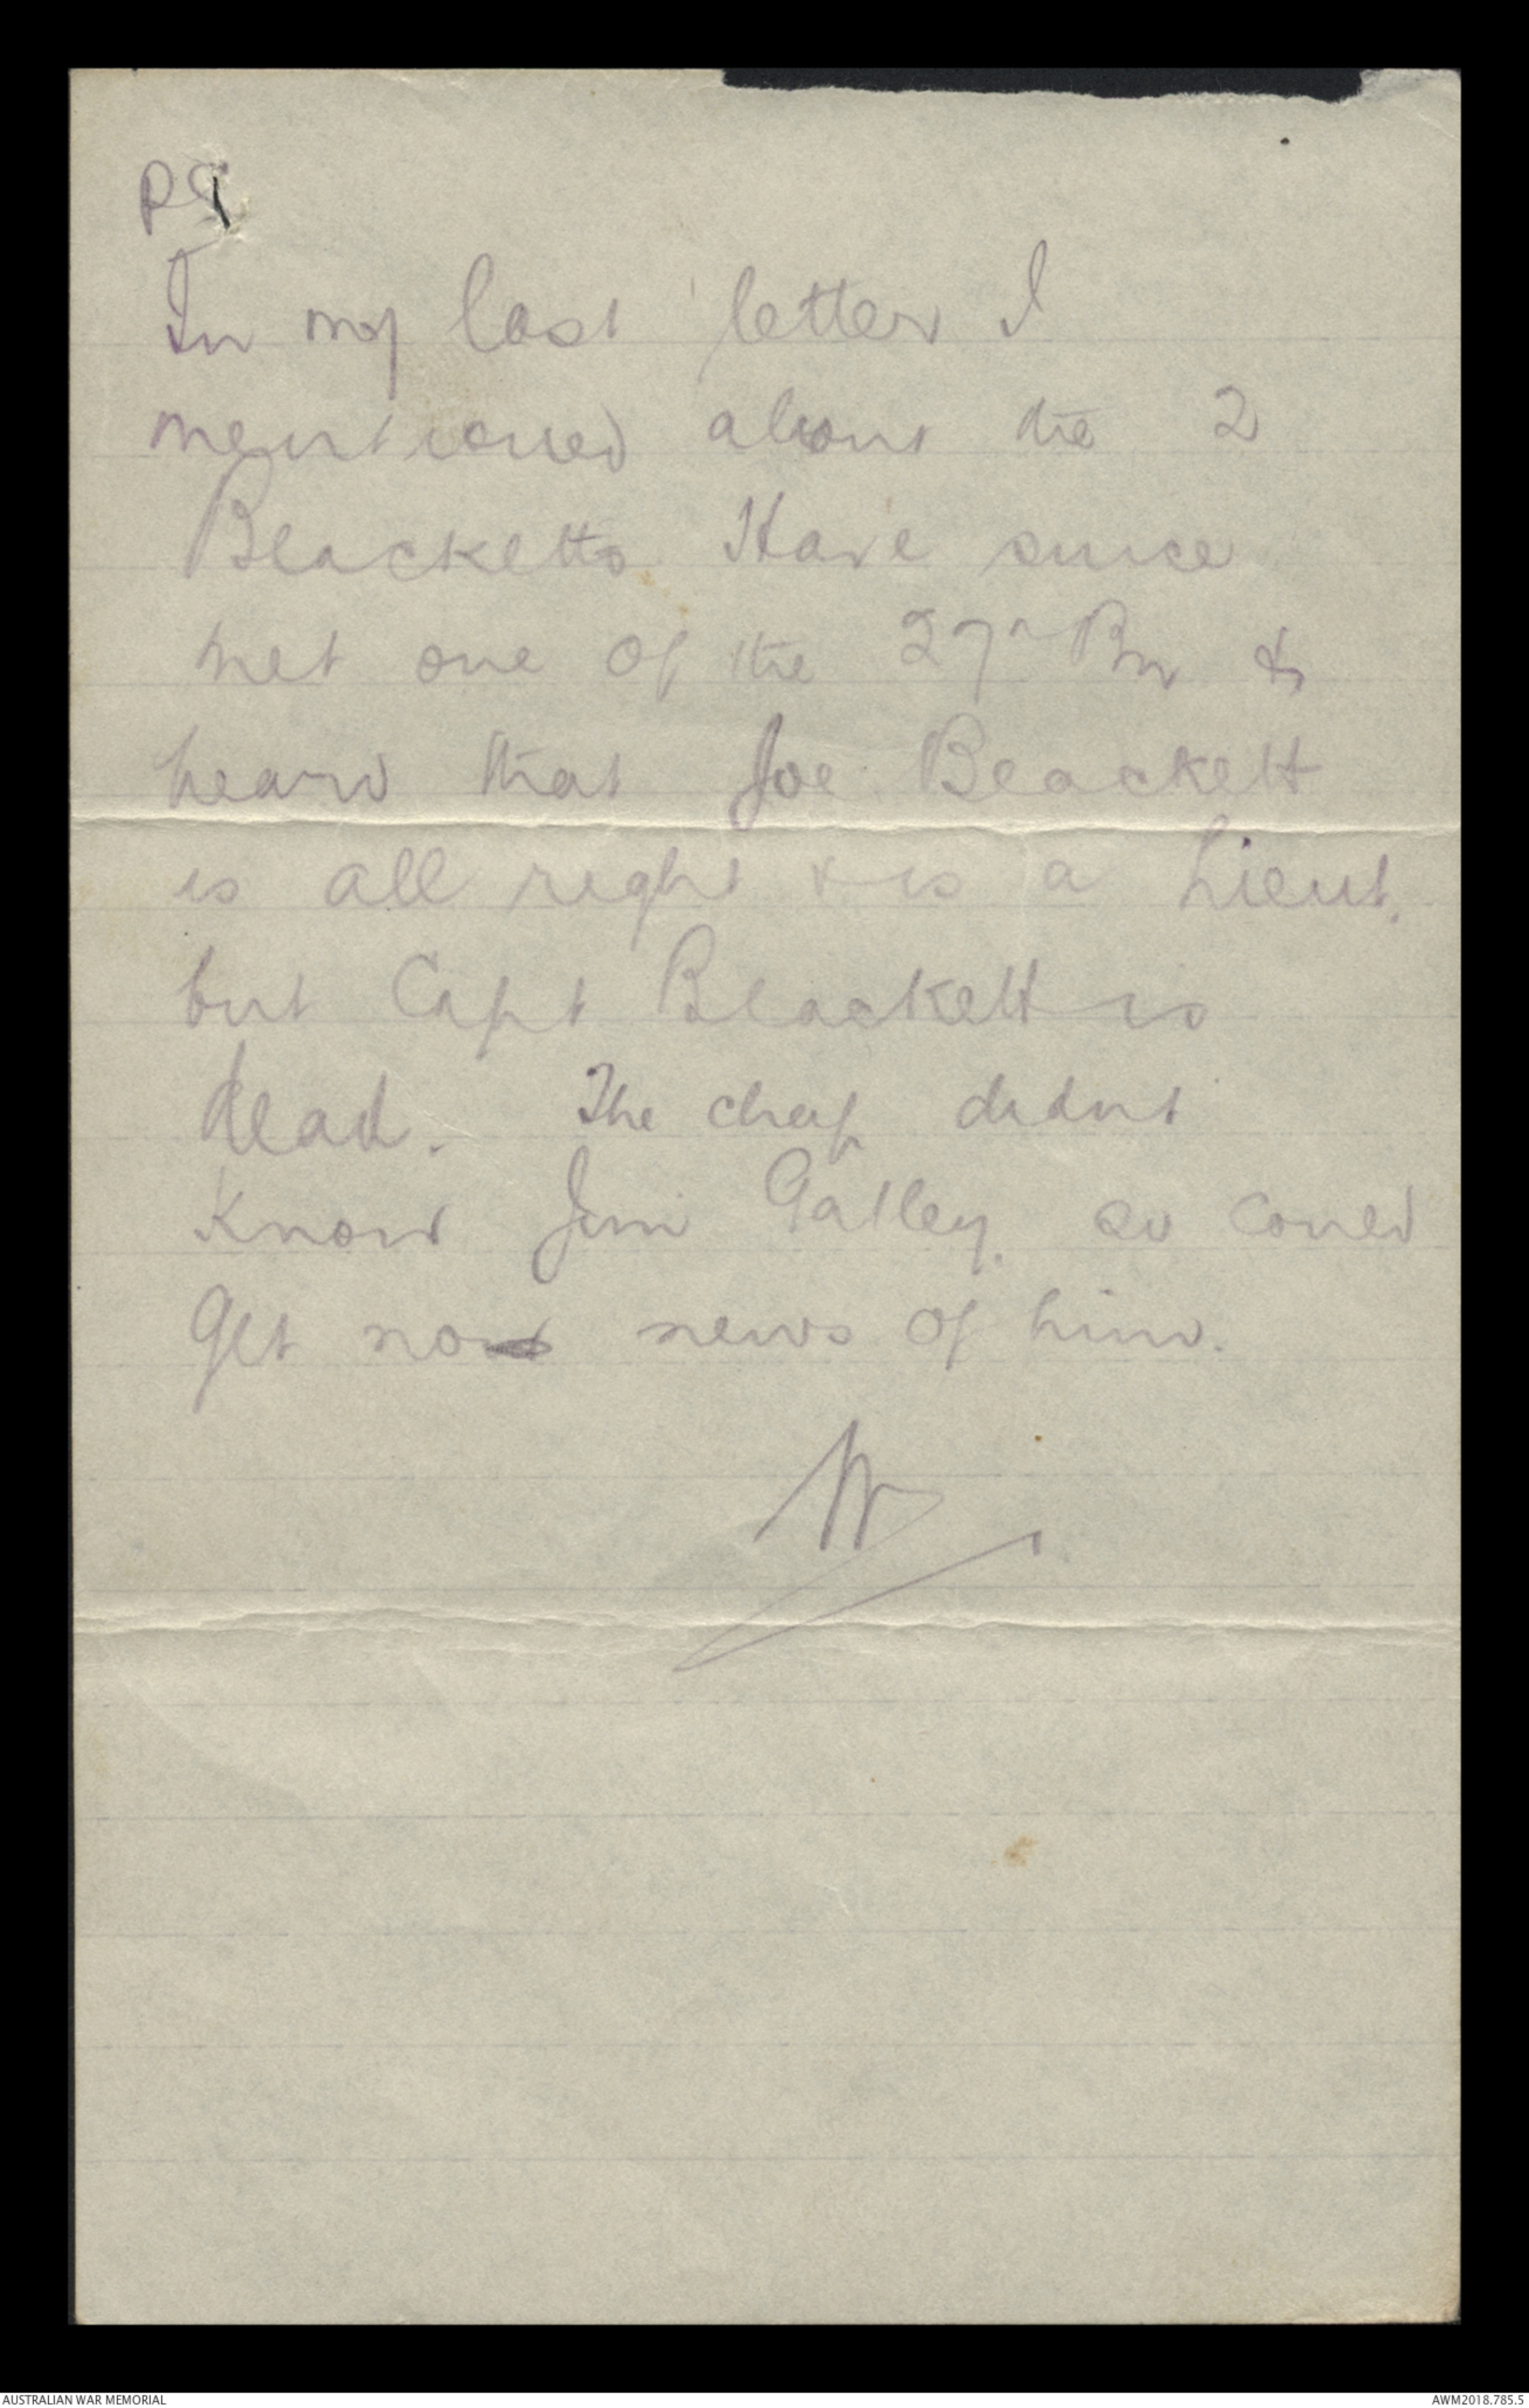 PS
In my last letter I
mentioned about the 2
Blacketts Have since
met one of the 27th Bn &
heard that Joe Blackett
is all right & is a Lieut.
but Capt Blackett is
dead. The chap didnt
know Jim Gatley. so could
get no news of him.
W
AUSTRALIAN WAR MEMORIAL
AWM2018.785.5